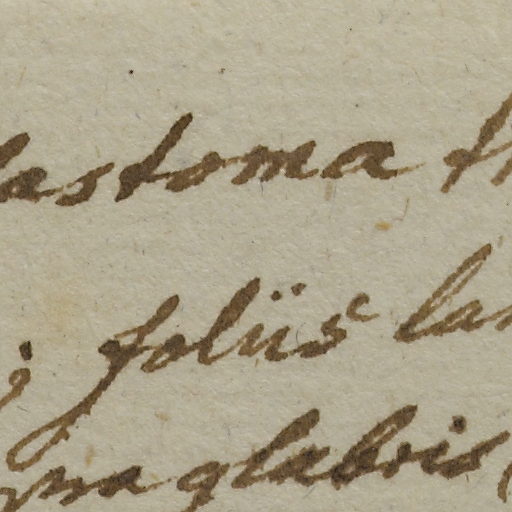 lastoma
foliis lan
glabris